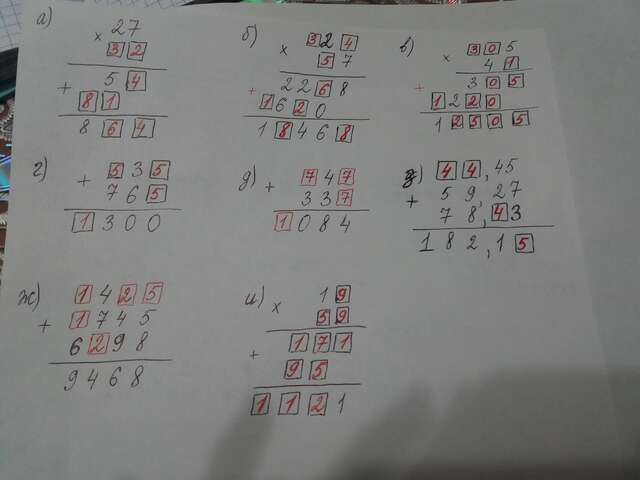 а) × 27
32
54
+ 81
864
б) × 324
57
2268
+ 1620
18468
в) × 305
41
305
+ 1220
12505
г) + 535
765
1300
д) + 747
337
1084
з) 44,45
+ 59,27
78,43
182,15
ж) 1425
+ 1745
6298
9468
и) × 19
59
+ 171
95
1121